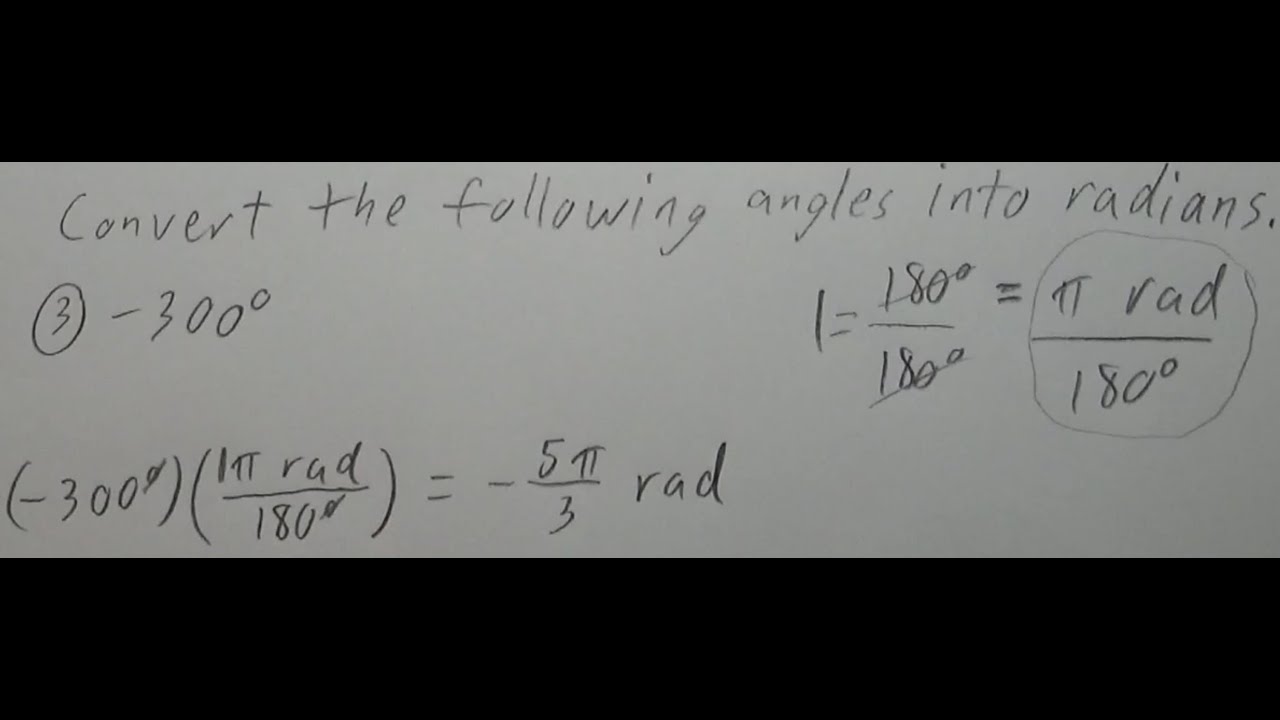 Convert the following angles into radians.
③ -300°
1 = 180°/180° = π rad/180°
(-300°)(1π rad/180°) = -5π/3 rad